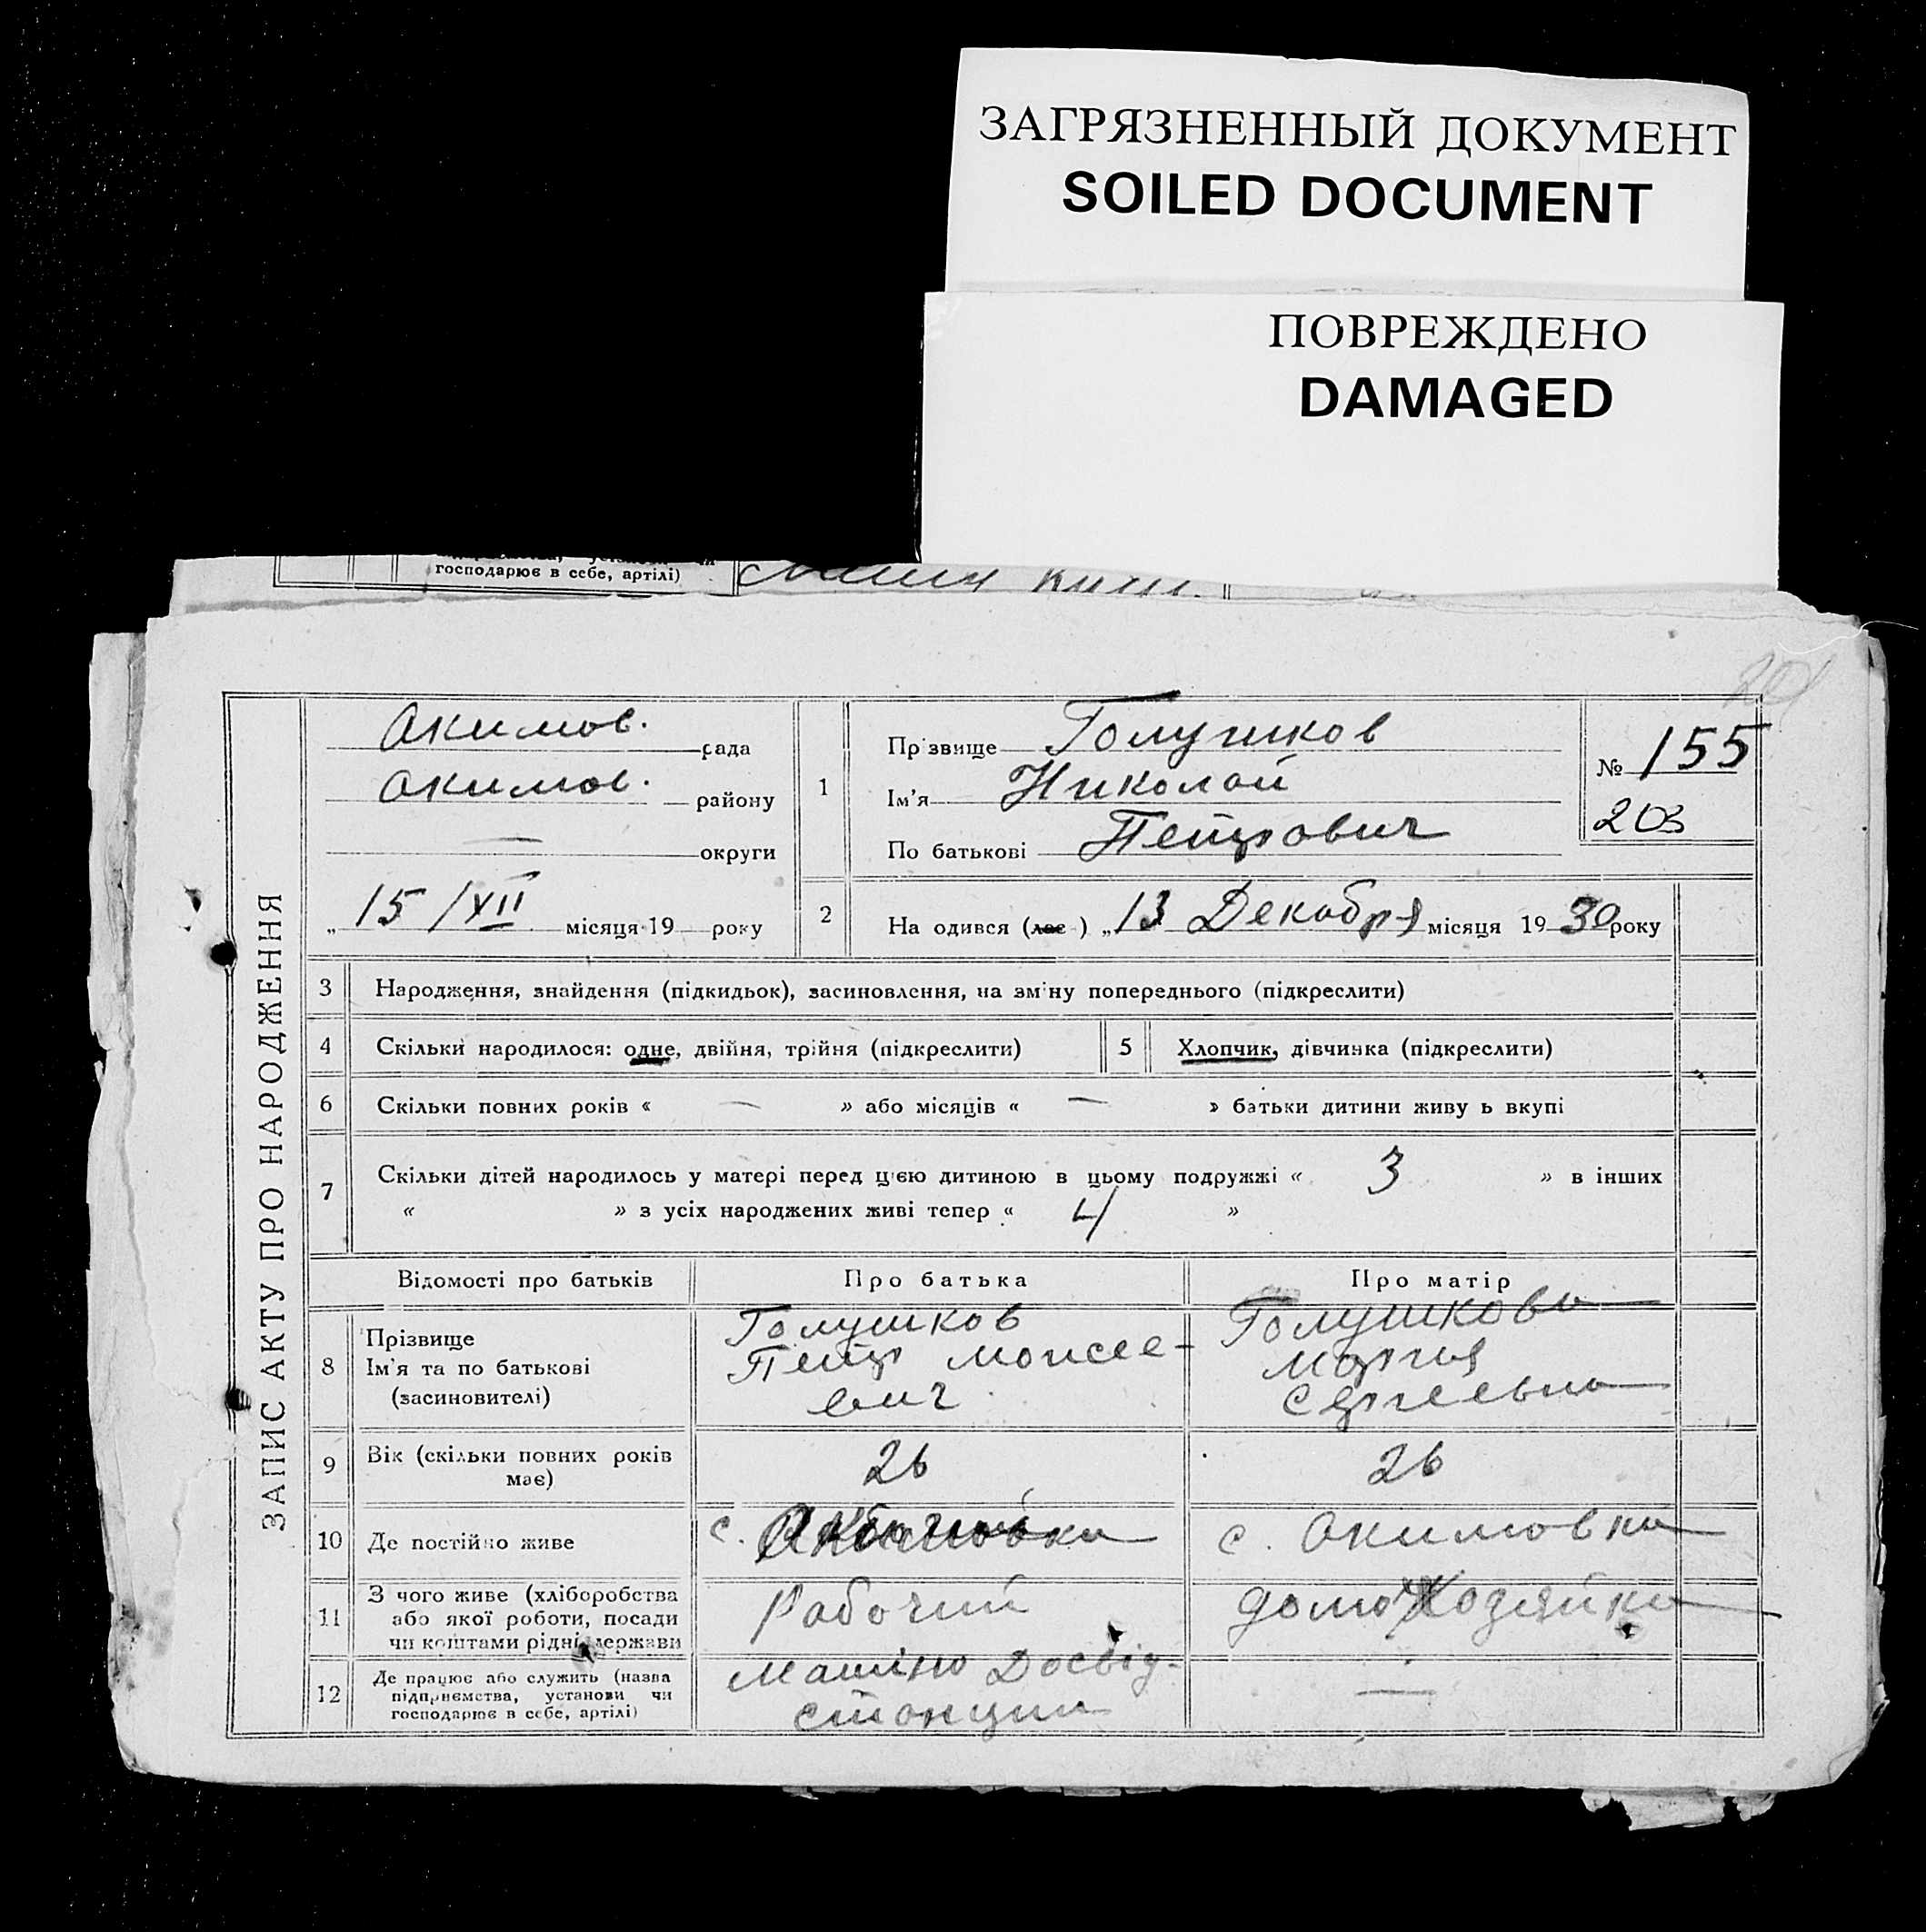 ЗАГРЯЗНЕННЫЙ ДОКУМЕНТ
SOILED DOCUMENT
ПОВРЕЖДЕНО
DAMAGED
господарює в себе, артілі)
ЗАПИС АКТУ ПРО НАРОДЖЕННЯ
Акимов. рада
Акимов. району
— округи
„ 15/XII місяця 19 року
1
ПрізвищеГолушков
Ім'я Николай
По батькові Петрович
№ 155
203
2 На одився (лас ) „ 13 Декабря місяця 19 30 року
3 Народження, знайдення (підкидьок), засиновлення, на зміну попереднього (підкреслити)
4 Скільки народилося: одне, двійня, трійня (підкреслити) 5 Хлопчик, дівчинка (підкреслити)
6 Скільки повних років « — » або місяців « — » батьки дитини живу ь вкупі
7 Скільки дітей народилось у матері перед цією дитиною в цьому подружжі « 3 » в інших
« » з усіх народжених живі тепер « 4 »
Відомості про батьків Про батька Про матір
8 Прізвище
Ім'я та по батькові
(засиновителі)
Голушков
Петр Моисее-
вич
Голушкова
Мария
Сергеевна
9 Вік (скільки повних років
має) 26 26
10 Де постійно живе с. Акимовка с. Акимовка
11 З чого живе (хліборобства
або якої роботи, посади
чи коштами рідні держави
Рабочий домоХозяйка
12 Де працює або служить (назва
підприємства, установи чи
господарює в себе, артілі)
Машино Досвід.
станции —